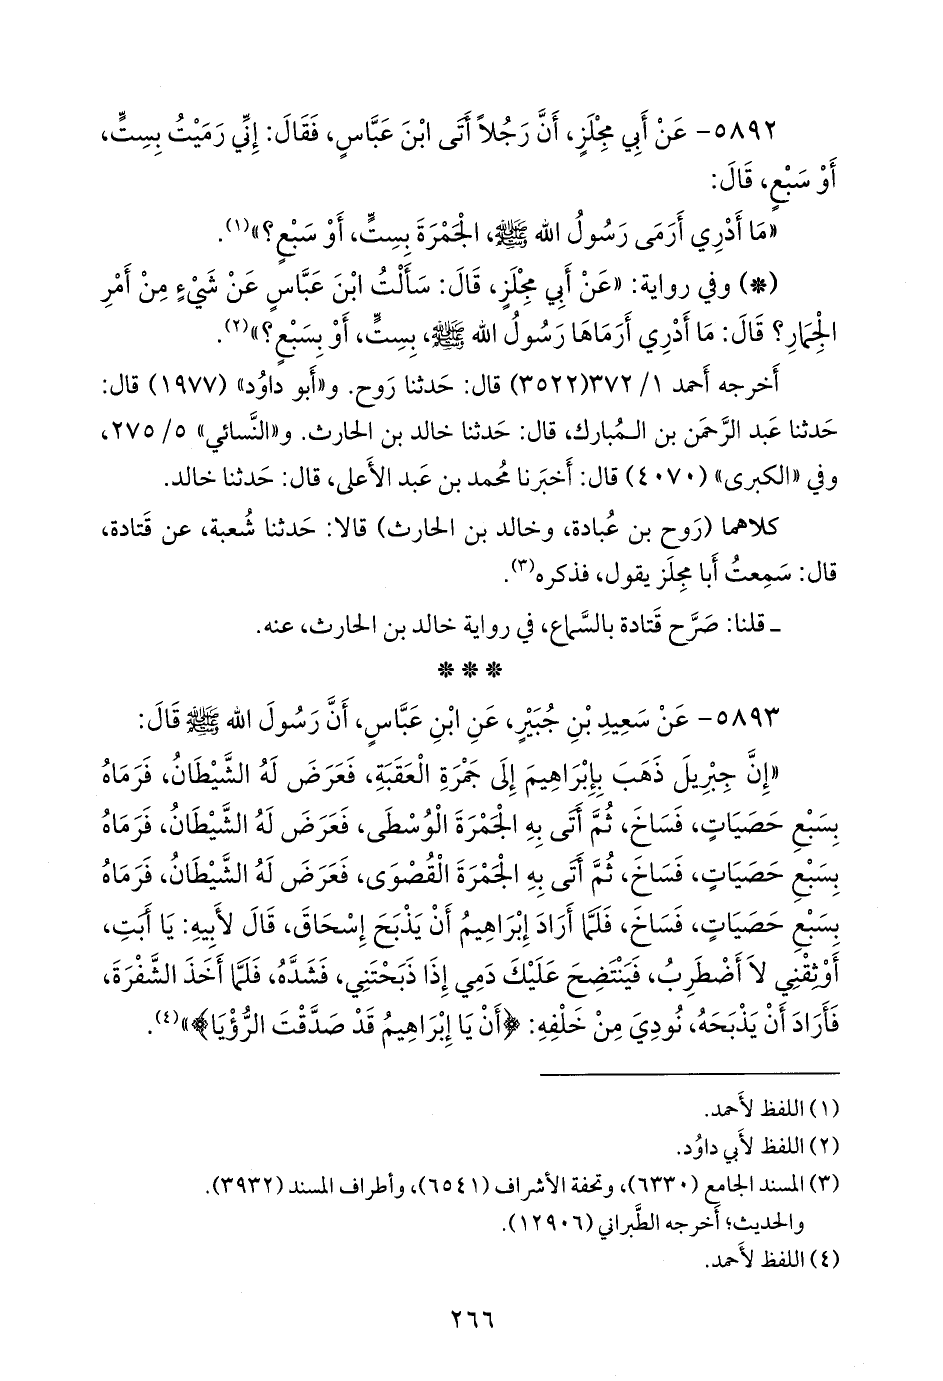 ٥٨٩٢- عَنْ أَبِي مِجْلَزٍ، أَنَّ رَجُلاً أَتَى ابْنَ عَبَّاسٍ، فَقَالَ: إِنِّي رَمَيْتُ بِسِتٍّ،
أَوْ سَبْعٍ، قَالَ:
«مَا أَدْرِي أَرَمَى رَسُولُ الله ﷺ، الْجَمْرَةَ بِسِتٍّ، أَوْ سَبْعٍ؟»(١).
(*) وفي رواية: «عَنْ أَبِي مِجْلَزٍ، قَالَ: سَأَلْتُ ابْنَ عَبَّاسٍ عَنْ شَيْءٍ مِنْ أَمْرِ
الْجِمَارِ؟ قَالَ: مَا أَدْرِي أَرَمَاهَا رَسُولُ الله ﷺ، بِسِتٍّ، أَوْ بِسَبْعٍ؟»(٢).
أَخرجه أَحمد ١/ ٣٧٢(٣٥٢٢) قال: حَدثنا رَوح. و«أَبو داوُد» (١٩٧٧) قال:
حَدثنا عَبد الرَّحمَن بن الـمُبارك، قال: حَدثنا خالد بن الحارث. و«النَّسائي» ٥/ ٢٧٥،
وفي «الكبرى» (٤٠٧٠) قال: أَخبَرنا مُحمد بن عَبد الأَعلى، قال: حَدثنا خالد.
كلاهما (رَوح بن عُبادة، وخالد بن الحارث) قالا: حَدثنا شُعبة، عن قَتادة،
قال: سَمِعتُ أَبا مِجلَز يقول، فذكره(٣).
ـ قلنا: صَرَّح قَتادة بالسَّماع، في رواية خالد بن الحارث، عنه.
* * *
٥٨٩٣- عَنْ سَعِيدِ بْنِ جُبَيْرٍ، عَنِ ابْنِ عَبَّاسٍ، أَنَّ رَسُولَ الله ﷺ قَالَ:
«إِنَّ جِبْرِيلَ ذَهَبَ بِإِبْرَاهِيمَ إِلَى جَمْرَةِ الْعَقَبَةِ، فَعَرَضَ لَهُ الشَّيْطَانُ، فَرَمَاهُ
بِسَبْعِ حَصَيَاتٍ، فَسَاخَ، ثُمَّ أَتَى بِهِ الْجَمْرَةَ الْوُسْطَى، فَعَرَضَ لَهُ الشَّيْطَانُ، فَرَمَاهُ
بِسَبْعِ حَصَيَاتٍ، فَسَاخَ، ثُمَّ أَتَى بِهِ الْجَمْرَةَ الْقُصْوَى، فَعَرَضَ لَهُ الشَّيْطَانُ، فَرَمَاهُ
بِسَبْعِ حَصَيَاتٍ، فَسَاخَ، فَلَمَّا أَرَادَ إِبْرَاهِيمُ أَنْ يَذْبَحَ إِسْحَاقَ، قَالَ لأَبِيهِ: يَا أَبَتِ،
أَوْثِقْنِي لاَ أَضْطَرِبُ، فَيَنْتَضِحَ عَلَيْكَ دَمِي إِذَا ذَبَحْتَنِي، فَشَدَّهُ، فَلَمَّا أَخَذَ الشَّفْرَةَ،
فَأَرَادَ أَنْ يَذْبَحَهُ، نُودِيَ مِنْ خَلْفِهِ: ﴿أَنْ يَا إِبْرَاهِيمُ قَدْ صَدَّقْتَ الرُّؤْيَا﴾»(٤).
(١) اللفظ لأَحمد.
(٢) اللفظ لأَبي داوُد.
(٣) المسند الجامع (٦٣٣٠)، وتحفة الأشراف (٦٥٤١)، وأطراف المسند (٣٩٣٢).
والحديث؛ أَخرجه الطَّبراني (١٢٩٠٦).
(٤) اللفظ لأَحمد.
٢٦٦